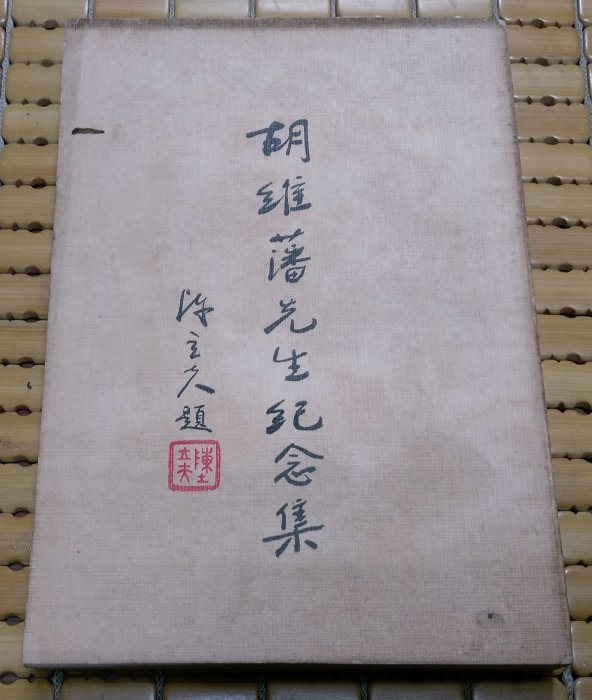 胡維藩先生紀念集
陳立夫題
陳立夫